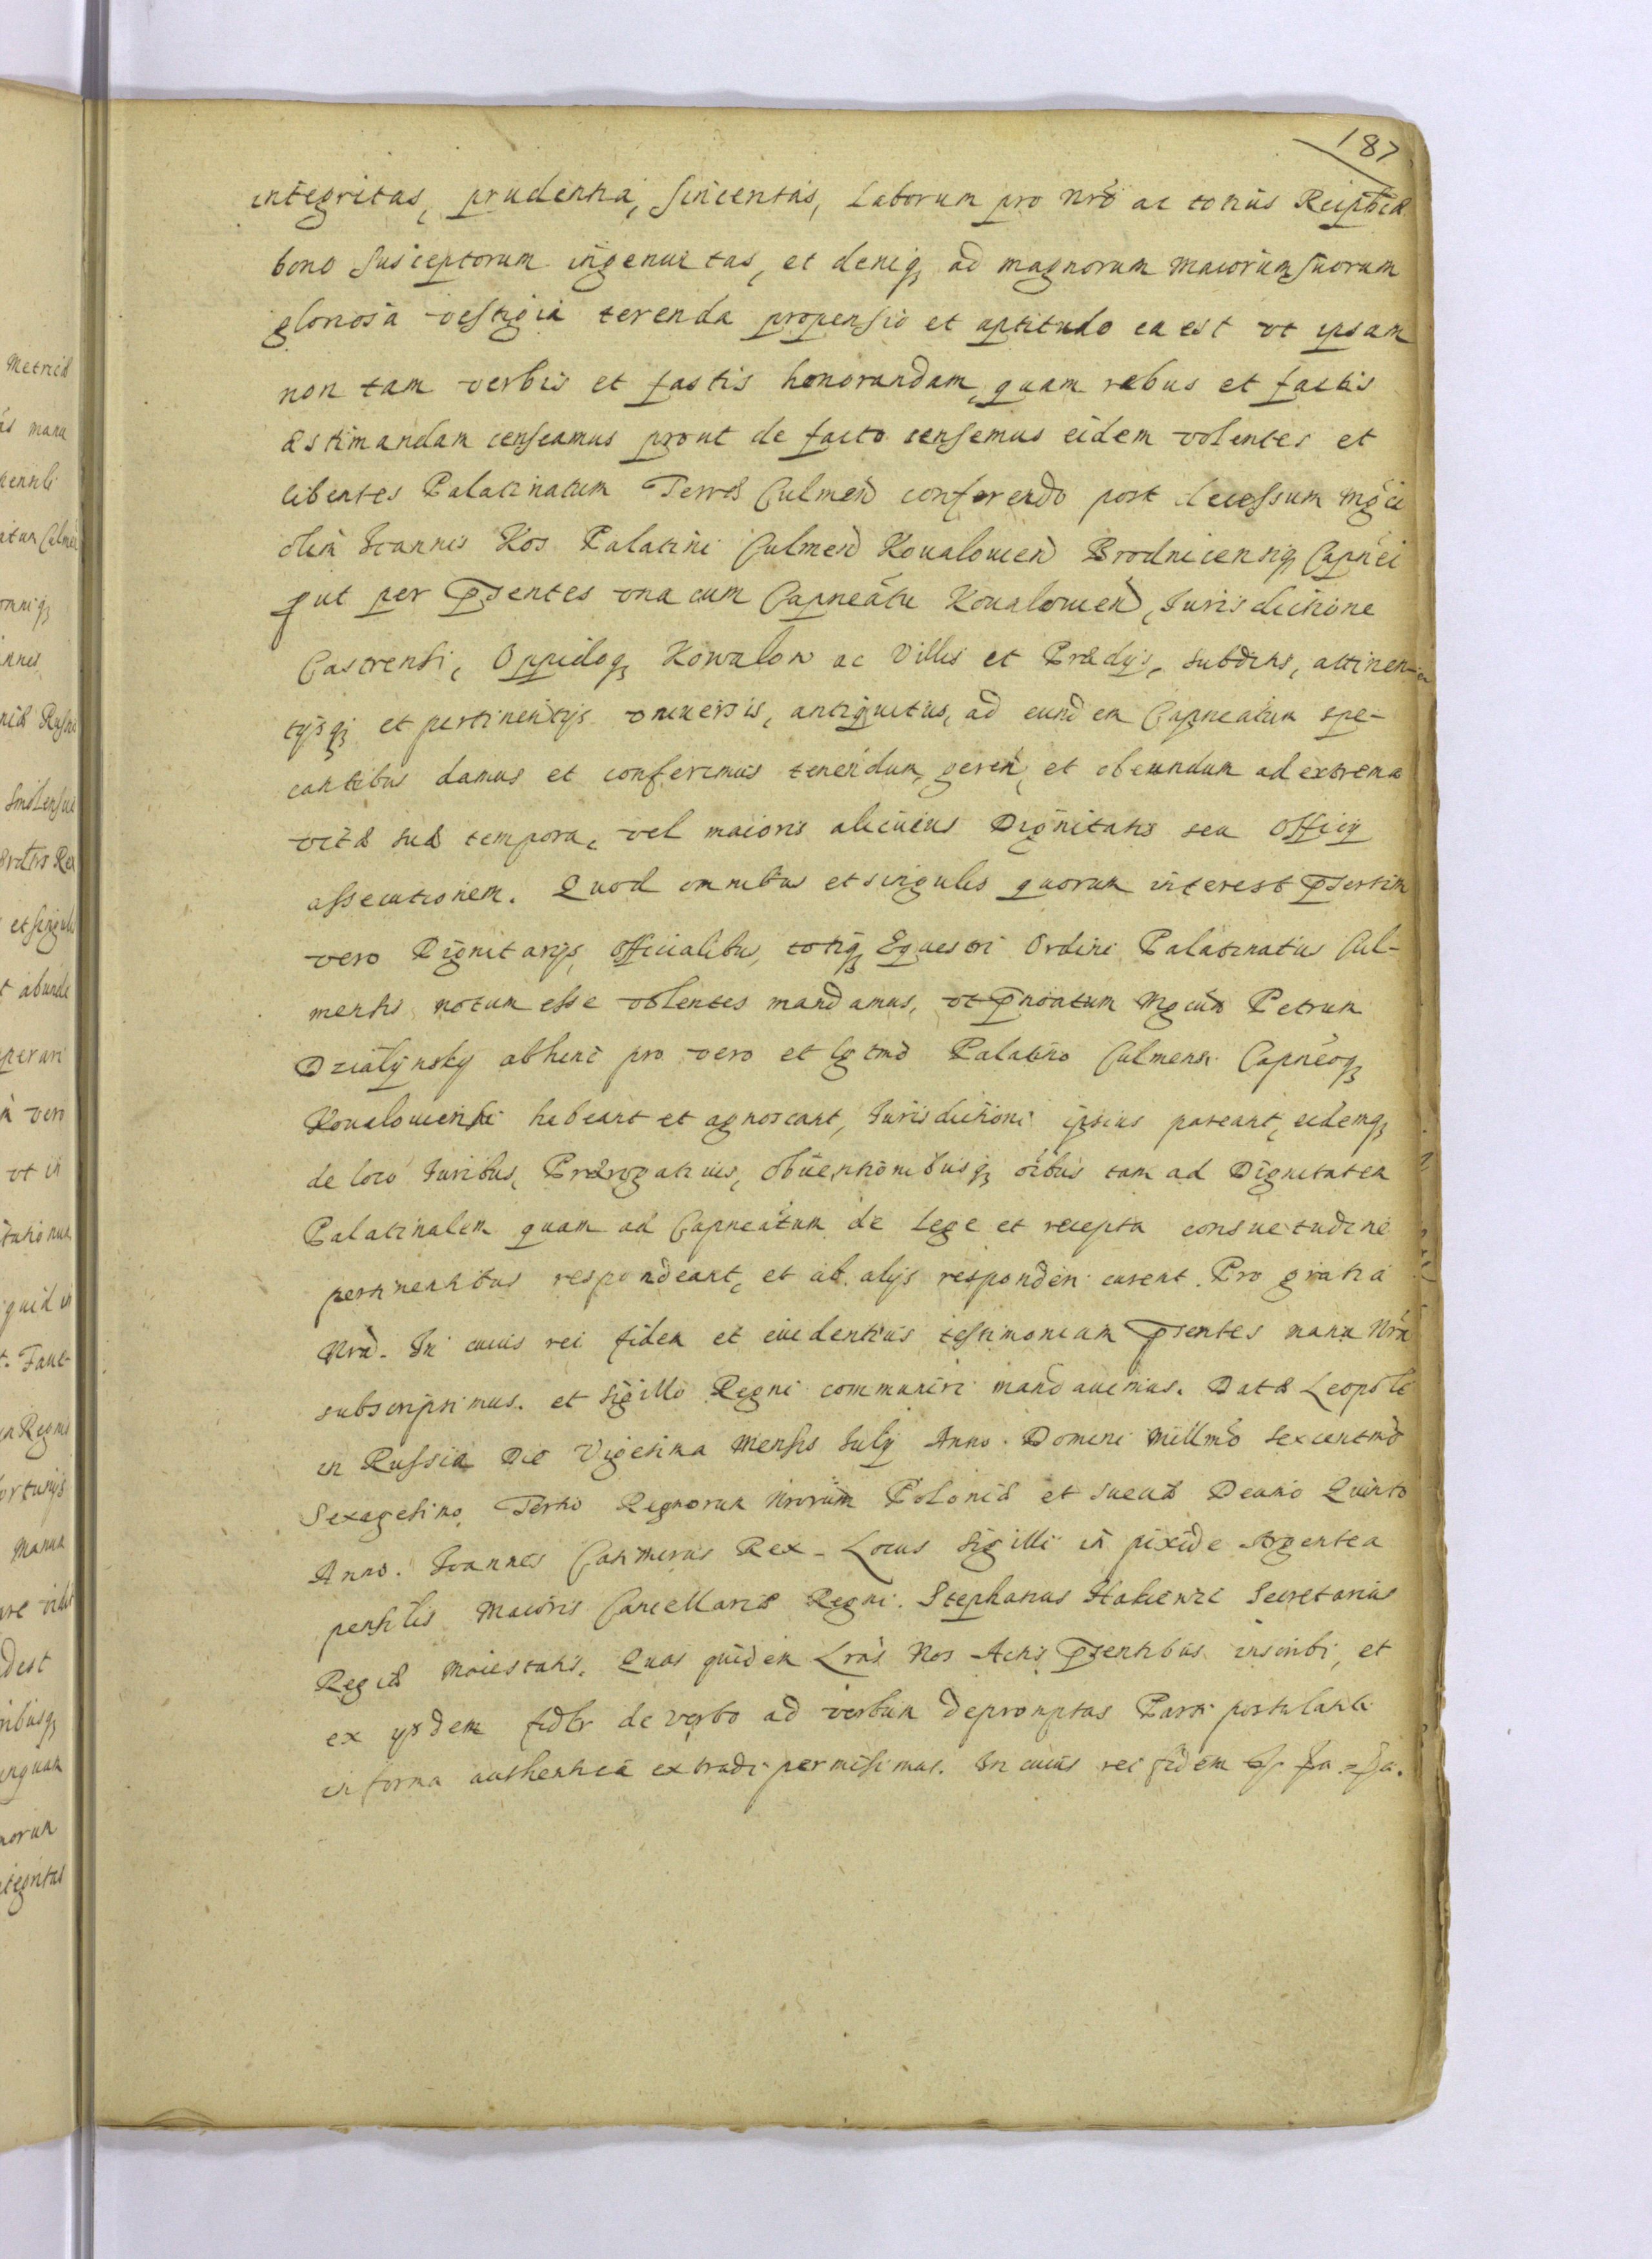 187
integritas, prudentia, sinceritas, Laborum pro nrõ ac totius Reipbcæ
bono susceptorum ingenuitas, et deniq, ad magnorum Maiorum suorum
gloriosa vestigia terenda propensio et aptitudo ea est vt ipsam
non tam verbis et fastis honorandam, quam rebus et factis
æstimandam censeamus prout de facto censemus eidem volentes et
libentes Palatinatum Terræ Culmeñ conferendo post decessum Mgci
olim Joannis Kos Palatini Culmeñ Koualoueñ Brodnicensiq Capnei
put per pñtes vna cum Capneatu Koualoueñ, Jurisdictione
Castrensi, Oppidoq, Kowalow ac Villis et Prædijs, subditis, attinen-
tijsq, et pertinentijs vniuersis, antiquitus, ad eundem Capneatum spe-
cantibus damus et conferimus tenendum, gereñ, et obeundum ad extrema
vitæ suæ tempora, vel maioris alicuius Dignitatis seu Officij
assecutionem. Quod omnibus et singulis quorum interest psertim
vero Dignitarijs, Officialibus, totiq, Equestri Ordini Palatinatus Cul-
mensis notum esse volentes mandamus, vt pnoatum Mgcum Petrum
Dzialijnsky abhinc pro vero et lgtmo Palatino Culmensi Capneoq,
Koualouiensi habeant et agnoscant, Jurisdictioni ipsius pareant, eidemq,
de loco Juribus, Prærogatiuis, obuentionibusq, oibus tam ad Dignitatem
Palatinalem quam ad Capneatum de Lege et recepta consuetudine
pertinentibus respondeant, et ab alijs responderi curent. Pro gratia
Nrã. In cuius rei fidem et euidentius testimonium psentes manu Nrã
subscripsimus. et Sigillo Regni communiri mandauimus. Datæ Leopoli
in Russia Die Vigesima Mensis Julij Anno. Domini Millmo Sexcentmo
Sexagesimo Tertio Regnorum Nrorum Poloniæ et Sueciæ Decimo Quinto
Anno. Joannes Casimirus Rex - Locus Sigilli in pixide Argentea
pensilis Maioris Cancellariæ Regni. Stephanus Hakienzi Secretarius
Regiæ Maiestatis. Quas quidem Lrãs Nos Actis psentibus inscribi, et
ex ijsdem fidlr de verbo ad verbum depromptas Parti postulanti
in forma authentica extradi permisimus. In cuius rei fidem